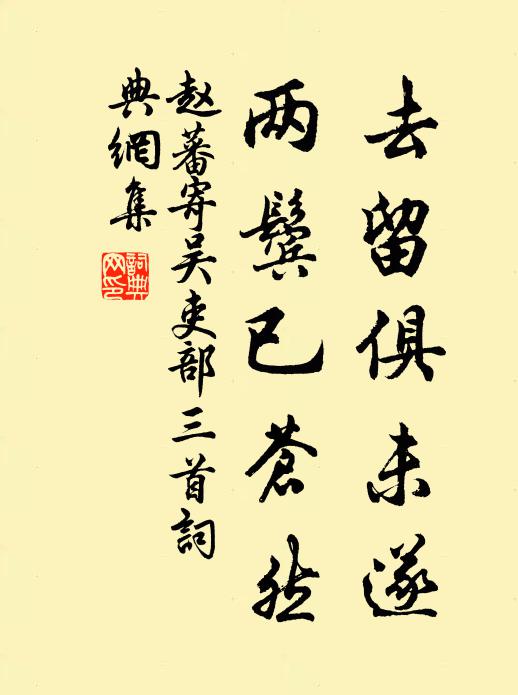 去留俱未遂
两鬓已苍然
赵蕃寄吴吏部三首詞
典網集
詞典网印